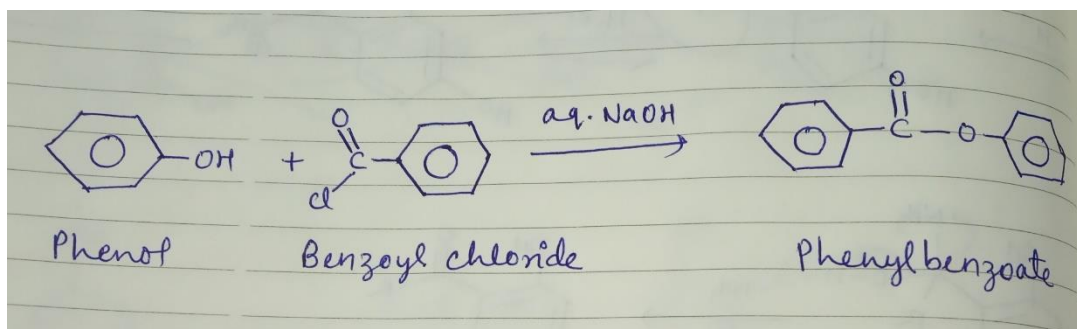 O
O
aq. NaOH
-OH + C C - O
Cl
Phenol Benzoyl chloride Phenylbenzoate